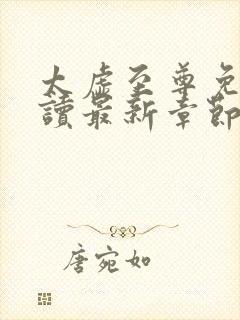 太虛至尊免
讀最新章節
唐宛如